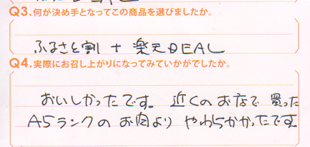 Q3.何が決め手となってこの商品を選びましたか。
ふるさと割 + 楽天DEAL
Q4.実際にお召し上がりになってみていかがでしたか。
おいしかったです。近くのお店で買った
A5ランクのお肉より やわらかかったです